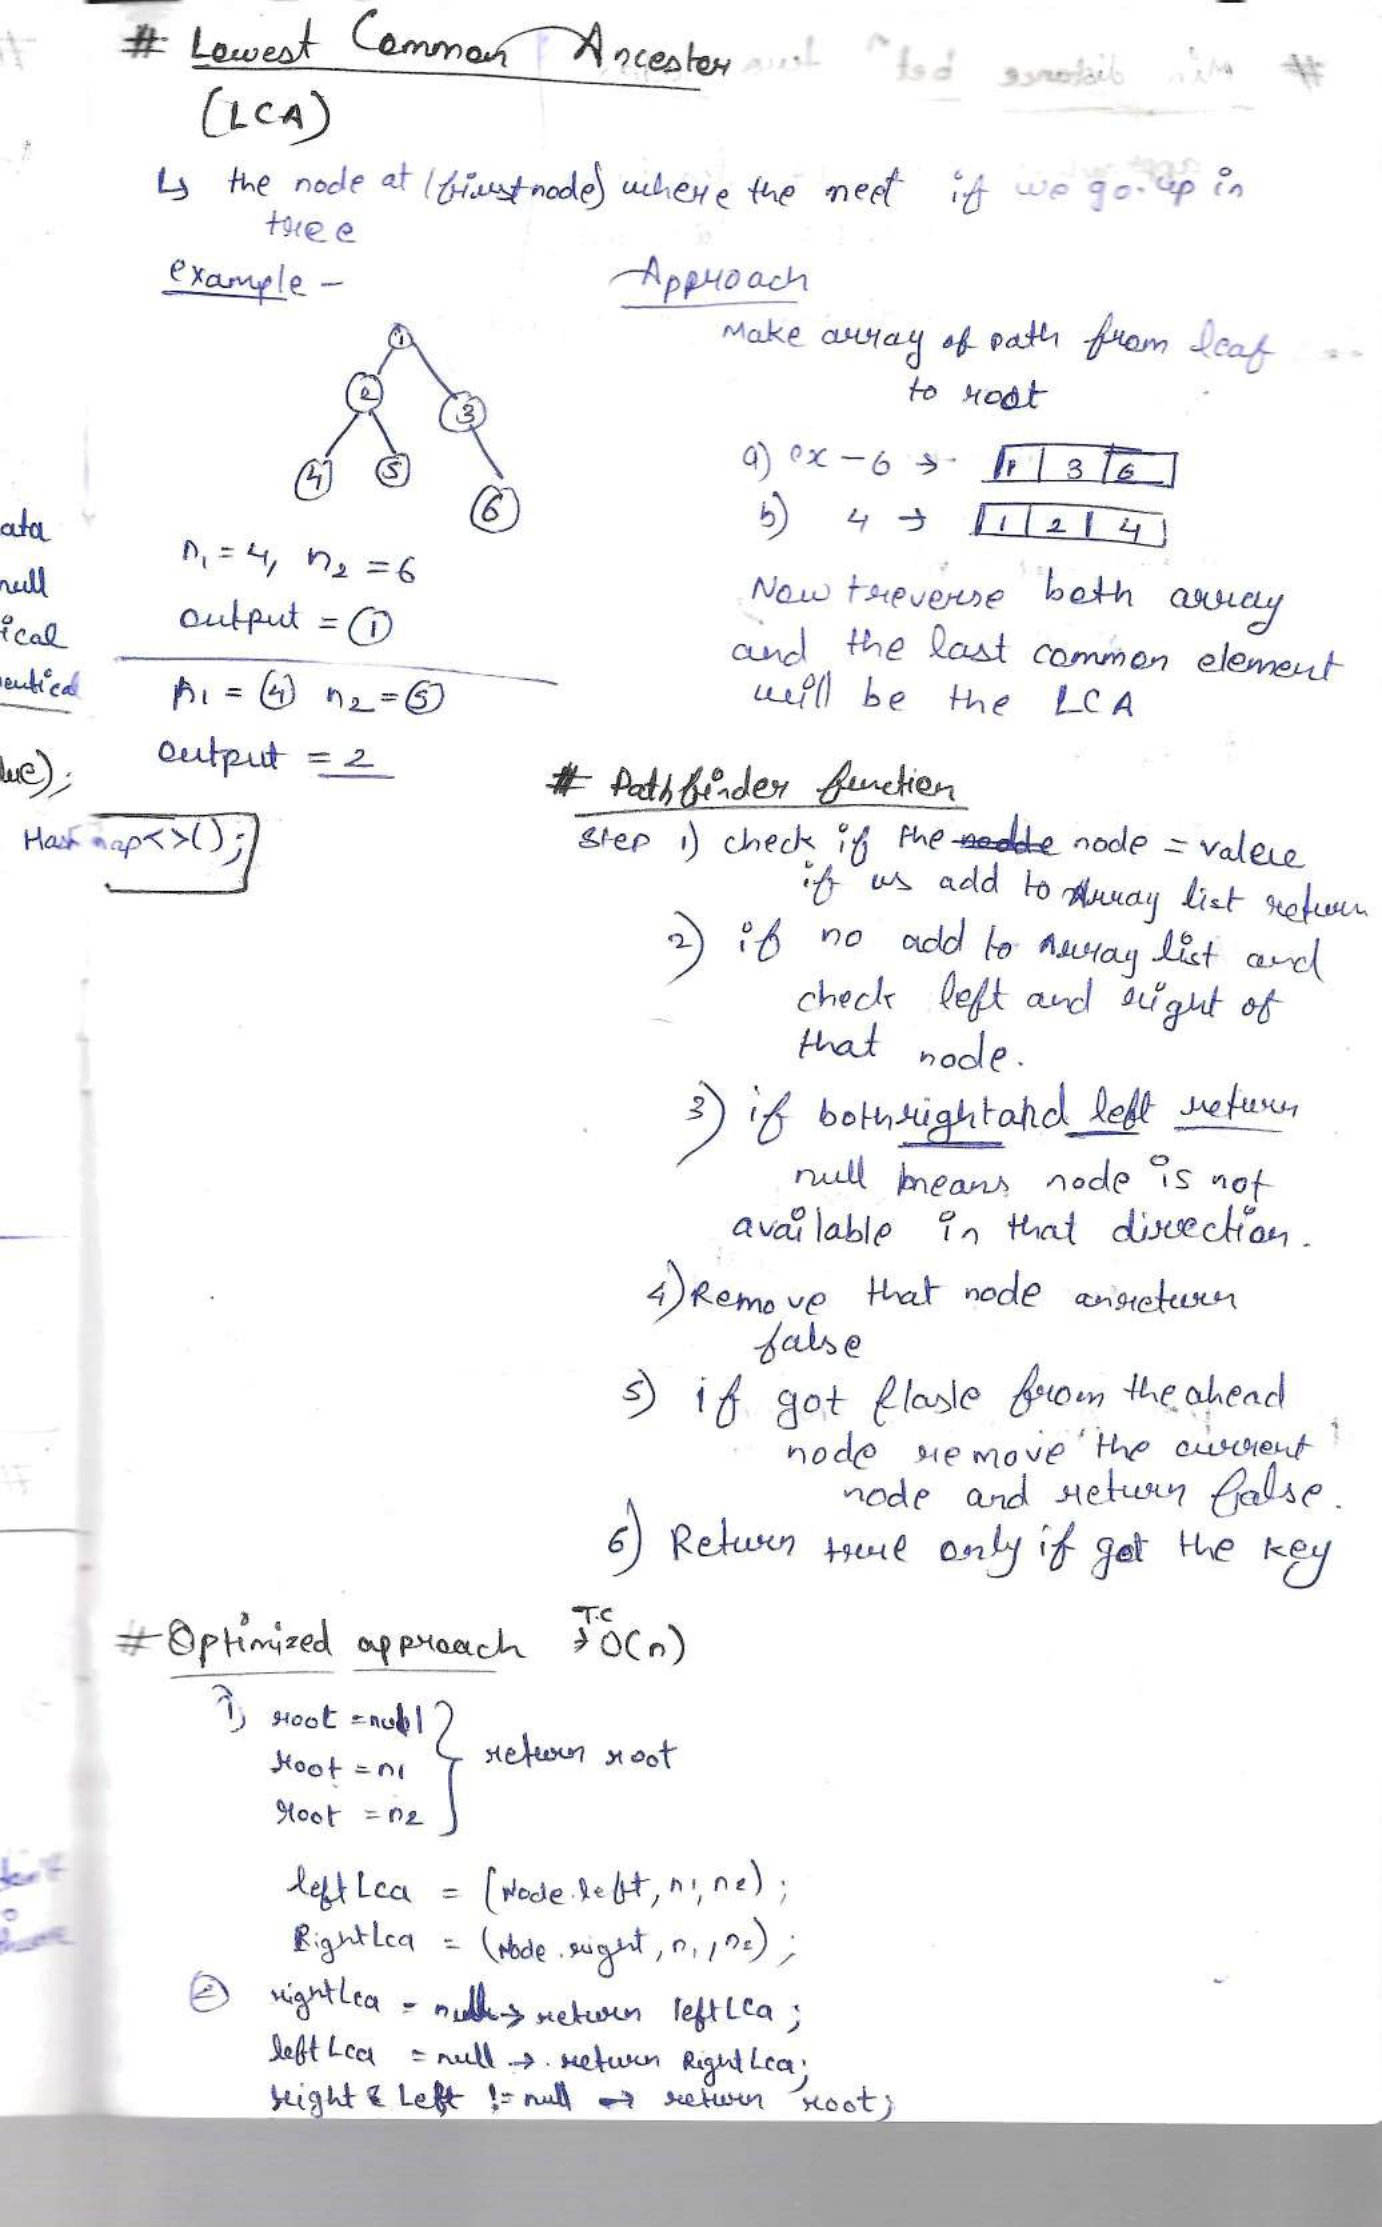 # Lowest Common Ancester
(LCA)
↳ the node at (first node) where the meet if we go up in
tree
example -
1
2
3
4
5
6
n1 = 4, n2 = 6
output = 1
n1 = 4 n2 = 5
output = 2
Approach
Make array of path from leaf
to root
a) ex - 6 → 1 3 6
b) 4 → 1 2 4
Now treverse both array
and the last common element
will be the LCA
# Pathfinder function
step 1) check if the node = value
if us add to Array list return
2) if no add to Array list and
check left and right of
that node.
3) if both right and left return
null means node is not
available in that direction.
4) Remove that node an return
false
5) if got flasle from the ahead
node remove the current
node and return false.
6) Return true only if got the key
# Optimized approach T.C → O(n)
1) root = null
root = n1
root = n2
return root
left Lca = (Node.left, n1, n2);
Right Lca = (Node.right, n1, n2);
2 right Lca = null → return left Lca;
left Lca = null → return Right Lca;
right & Left != null → return root;
ata
null
ical
lue);
Hash map<>();